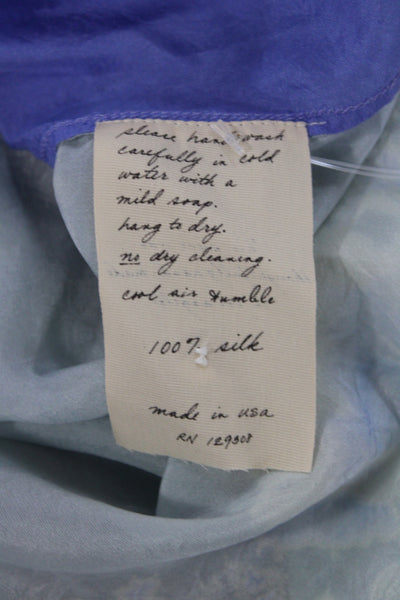 please hand wash
carefully in cold
water with a
mild soap.
hang to dry.
no dry cleaning.
cool air tumble
100% silk
made in usa
RN 129308